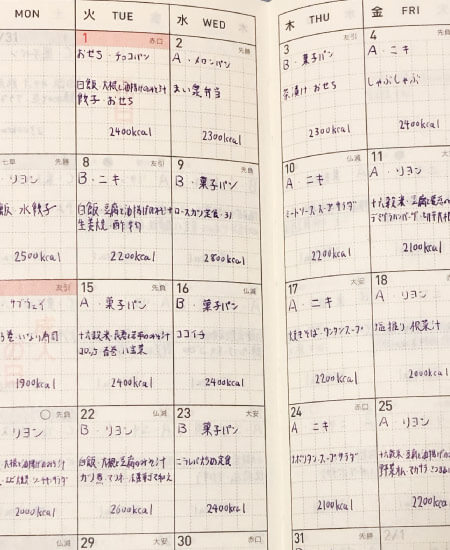 MON 火 TUE 水 WED 木 THU 金 FRI
1 赤口
おせち・チョコパン
白飯・大根と油揚げのみそ汁
餃子・おせち
2400kcal
2 先勝
A・メロンパン
まい泉弁当
2300kcal
3 友引
B・菓子パン
茶漬け おせち
2300kcal
4 先負
A・ニキ
しゃぶしゃぶ
2400kcal
先勝
・リヨン
飯 水餃子
2500kcal
8 友引
B・ニキ
白飯・豆腐と油揚げのみそ汁
生姜焼 酢の物
2200kcal
9 先負
B・菓子パン
ロースカツ定食・31
2800kcal
10 仏滅
A ニキ
ミートソース スープ サラダ
2200kcal
11 大安
A・リヨン
十六穀米・豆腐と
デミグラハンバーグ
2100kcal
友引
・サブウェイ
巻・いなり寿司
1900kcal
15 先負
A・菓子パン
十六穀米
八宝菜
2400kcal
16 仏滅
B・菓子パン
ココイチ
2400kcal
17 大安
A・ニキ
焼きそば・ワンタンスープ
2200kcal
18
A・リヨン
塩握り 根菜汁
2000kcal
先負
・リヨン
大根と油揚げのみそ汁
2000kcal
22 仏滅
B・リヨン
白飯・大根と豆腐のみそ汁
2600kcal
23 大安
B 菓子パン
ニラレバ炒め定食
2400kcal
24 赤口
A・ニキ
ナポリタン・スープ サラダ
2100kcal
25
A・リヨン
十六穀米・豆腐と油揚げのみそ汁
2200kcal
仏滅
29 大安
30 赤口
31 先勝
2/1